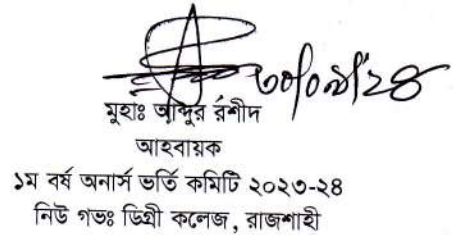 ৩০/০৯/২৪
মুহাঃ আব্দুর রশীদ
আহবায়ক
১ম বর্ষ অনার্স ভর্তি কমিটি ২০২৩-২৪
নিউ গভঃ ডিগ্রী কলেজ, রাজশাহী